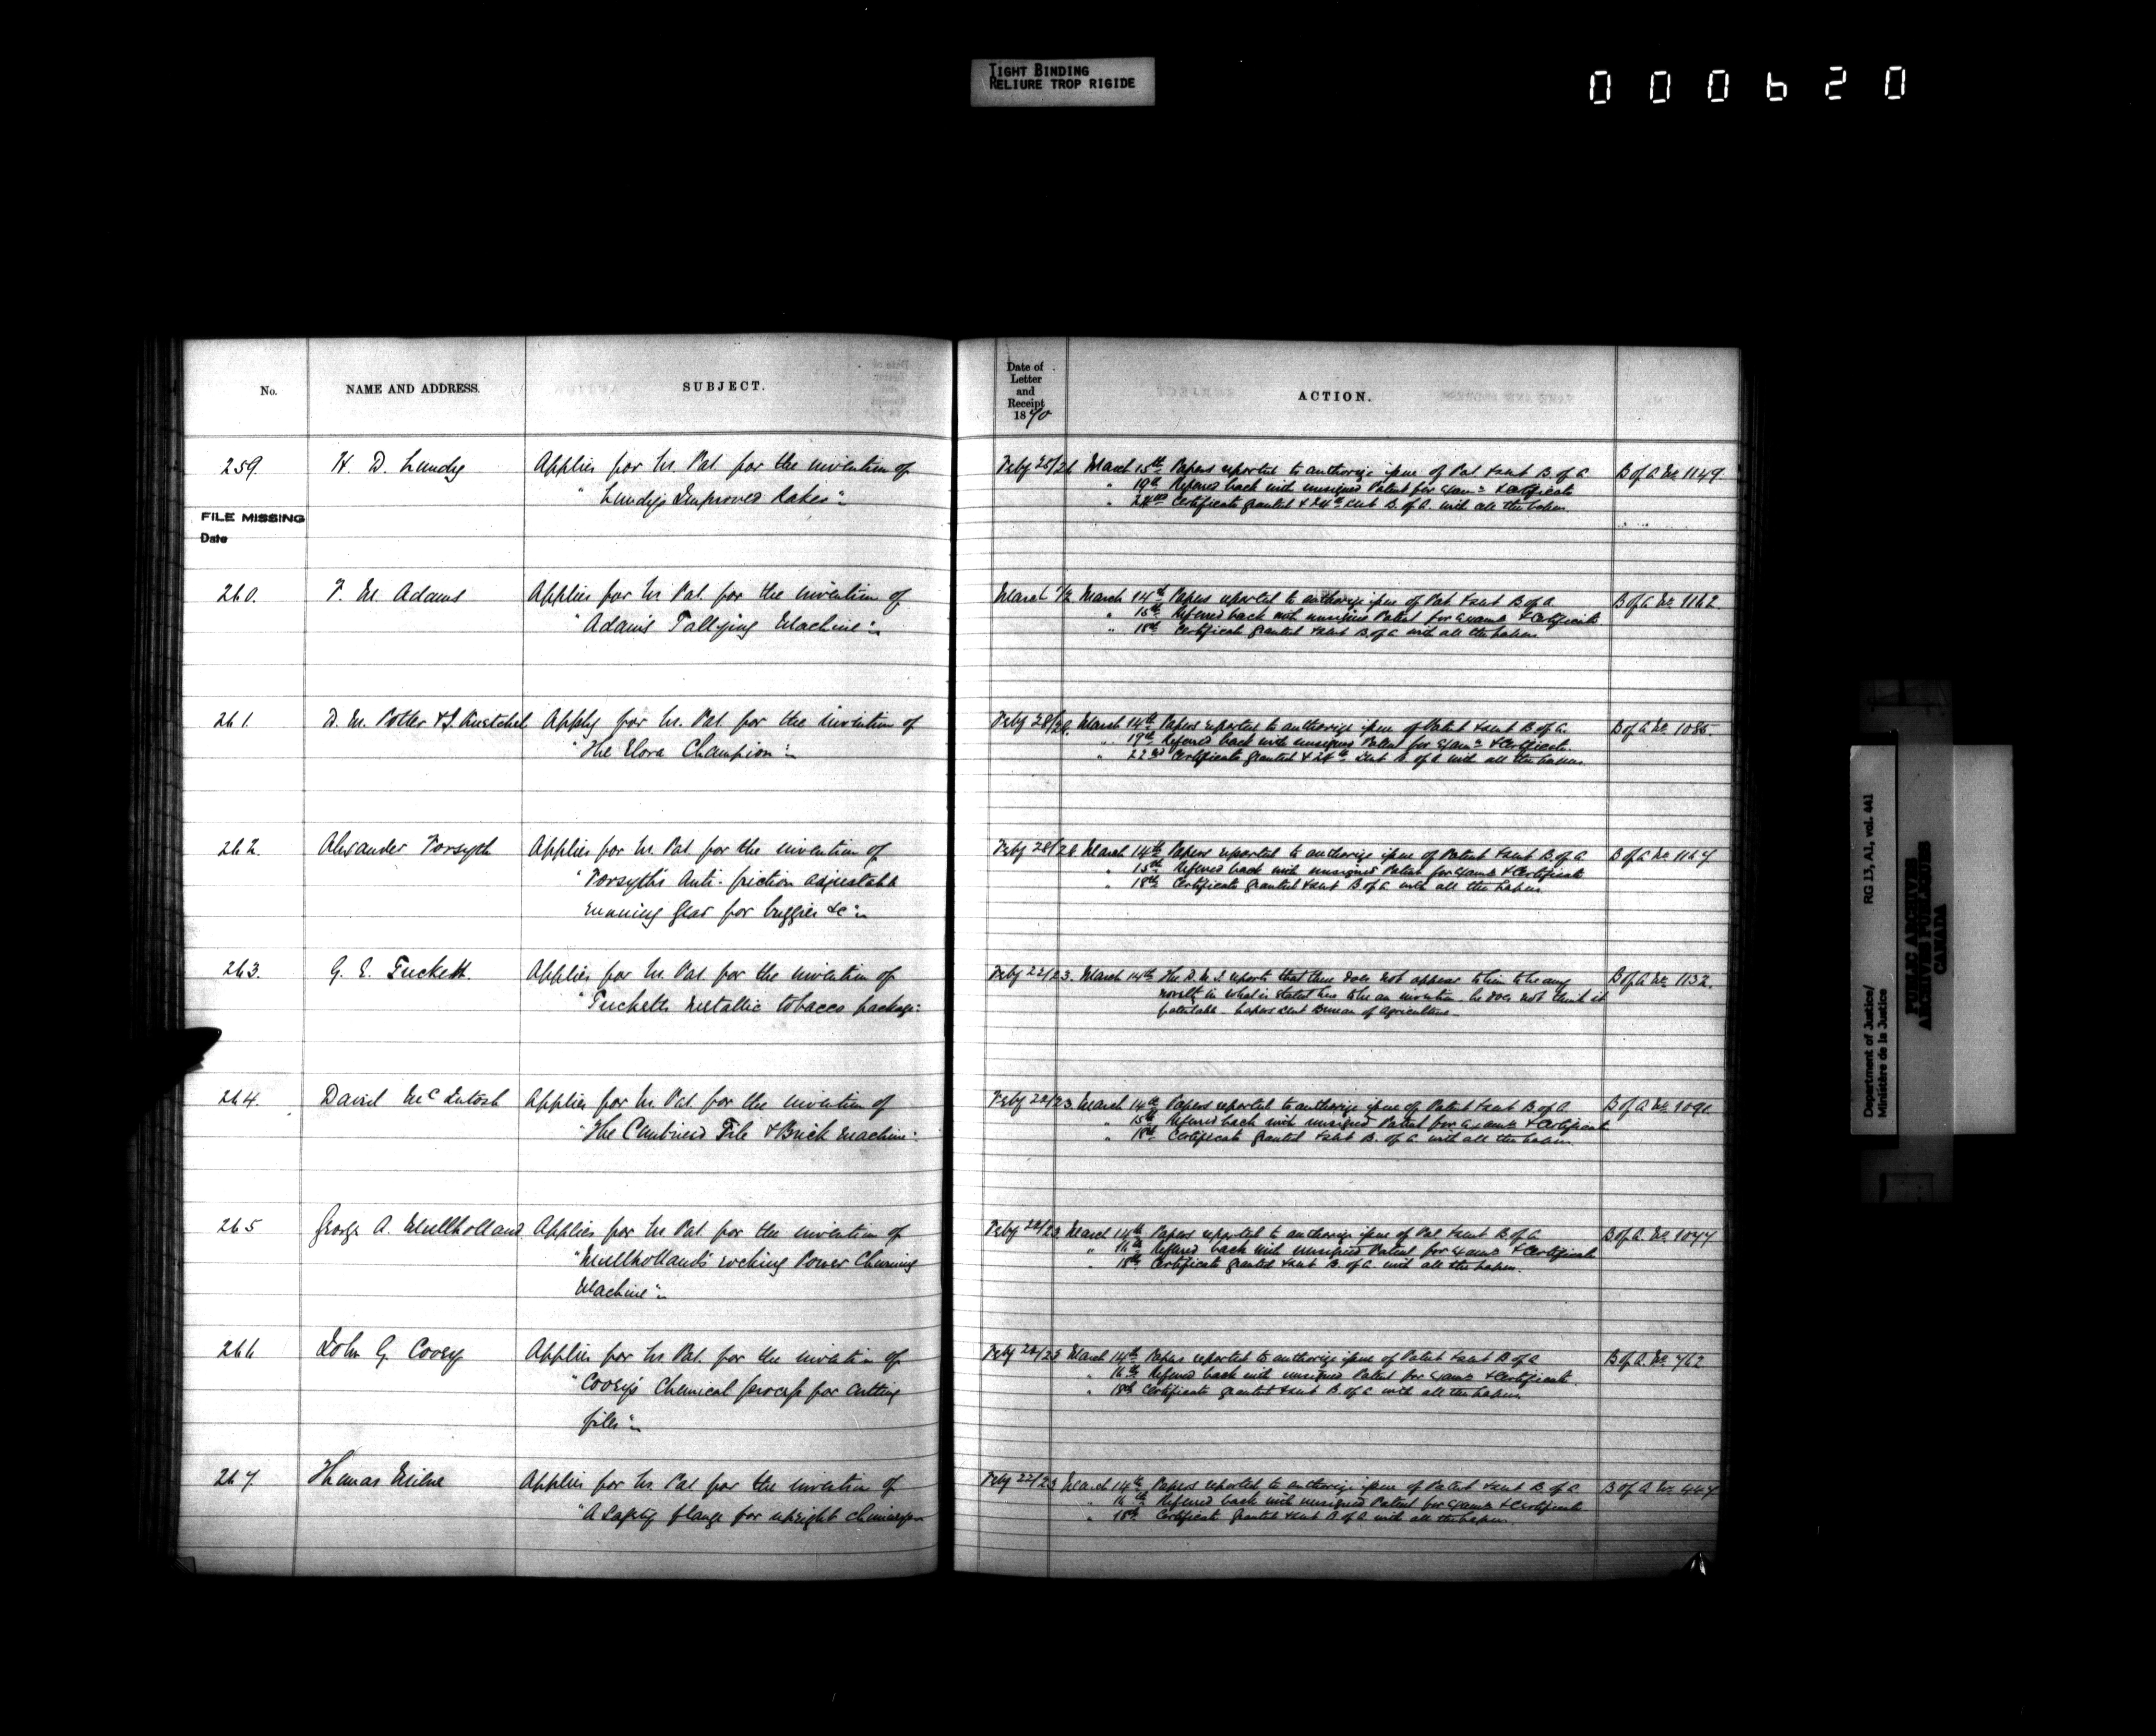 TIGHT BINDING
RELIURE TROP RIGIDE
000620
No.
NAME AND ADDRESS.
SUBJECT.
Date of
Letter
and
Receipt
1870
ACTION.
259. H. D. Lundy Applies for Lrs. Pat. for the invention of
"Lundy's Improved Rakes".
FILE MISSING
Date
Feby 25/26 March 15th Papers reported to authorize issue of Pat. & sent B. of A. B of A No. 1149.
" 19th Referred back with unsigned Patent for Examn & Certificate
" Certificate granted & 24th sent B. of A. with all the papers.
260. F. M. Adams Applies for Lrs. Pat. for the invention of
"Adams Tallying Machine".
March 1/2 March 14th Papers reported to authorize issue of Pat. & sent B of A. B of A No. 1162.
" 15th Referred back with unsigned Patent for Examn & Certificate
" 18th Certificate granted & sent B. of A with all the papers.
261. D. M. Potter & J. Apply for Lrs. Pat. for the invention of
"The Elora Champion".
Feby 28/28. March 14th Papers reported to authorize issue of Patent & sent B. of A. B of A No. 1085.
" 19th Referred back with unsigned Patent for Examn & Certificate.
" 22nd Certificate granted & 24th sent B. of A with all the papers.
262. Alexander Forsyth Applies for Lrs Pat for the invention of
"Forsyth's Anti-friction adjustable
running gear for buggies &c".
Feby 28/28 March 14th Papers reported to authorize issue of Patent & sent B. of A B of A No. 1167
" 15th Referred back with unsigned Patent for Examn & Certificate
" 18th Certificate granted & sent B of A with all the papers.
263. G. E. Tuckett. Applies for Lrs. Pat. for the invention of
"Tucketts metallic tobacco package".
Feby 22/23. March 14th The D. M. J. reports that there does not appear to him to be any B of A No. 1132.
novelty in what is stated here to be an invention. he does not think it
patentable. papers sent Bureau of Agriculture.
264. David McIntosh Applies for Lrs. Pat. for the invention of
"The Combined Tile & Brick Machine".
Feby 22/23. March 14th Papers reported to authorize issue of Patent & sent B. of A. B of A No. 1091.
" 15th Referred back with unsigned Patent for Examn & Certificate
" 18th Certificate granted & sent B. of A with all the papers.
265 George A. Mullholland Applies for Lrs. Pat. for the invention of
"Mullholland's rocking Power Churning
Machine".
Feby 22/23 March 14th Papers reported to authorize issue of Pat & sent B of A B of A. No. 1077
" 16th Referred back with unsigned Patent for Examn & Certificate
" 18th Certificate granted & sent B. of A. with all the papers.
266 John G. Coosy Applies for Lrs Pat. for the invention of
"Coosy's Chemical process for cutting
files".
Feby 22/23 March 14th Papers reported to authorize issue of Patent & sent B of A B of A. No. 762
" 16th Referred back with unsigned Patent for Examn & Certificate.
" 18th Certificate granted & sent B. of A with all the papers.
267. Thomas Milne Applies for Lrs Pat for the invention of
"A Safety flange for upright chimneys".
Feby 22/23 March 14th Papers reported to authorize issue of Patent & sent B. of A. B of A No.
" 16th Referred back with unsigned Patent for Examn & Certificate
" 18th Certificate granted & sent B of A with all the papers.
Department of Justice/
Ministère de la Justice
RG 13, A1, vol. 441
PUBLIC ARCHIVES
ARCHIVES PUBLIQUES
CANADA